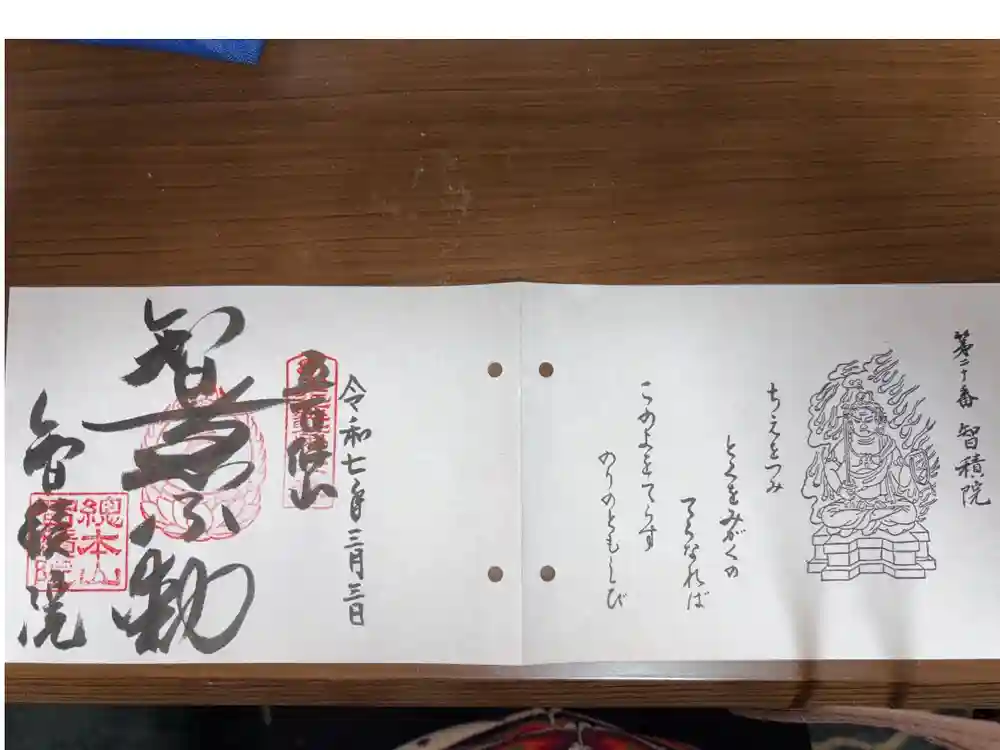 第二十番 智積院
ちえをつみ
とくをみがくの
てらなれば
このよをてらす
のりのともしび
令和七年三月三日
五百佛山
智恵不動
智積院
総本山
智積院